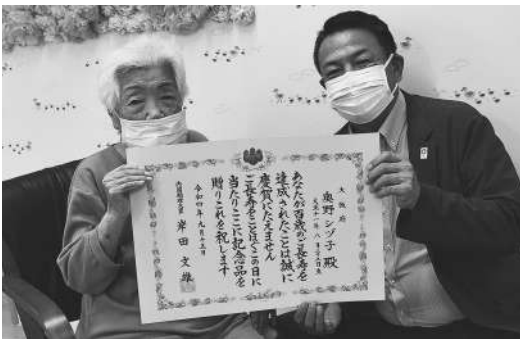 大阪府
奥野シヅ子 殿
大正十一年 八月
あなたが百歳のご長寿を
達成されたことは誠に
慶賀にたえません
ご長寿をことほぐこの日に
当たりここに記念品を
贈りこれを祝します
令和四年九月十五日
内閣総理大臣 岸田文雄